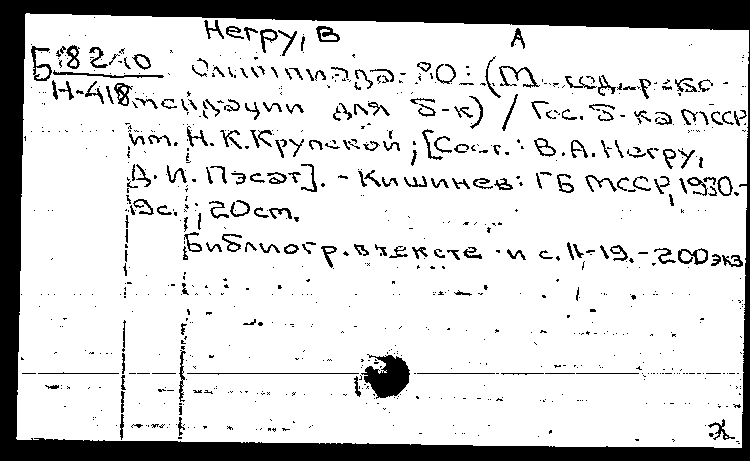 Негру, В А
Б 18240 Олимпиада-80: (М
Н-418 для б-к) / Гос. б-ка МССР
им. Н. К. Крупской; [Сост.: В.А. Негру,
Д. И. Пэсэт]. - Кишинев: ГБ МССР, 1930.-
19с.; 20ст.
Библиогр. в тексте и с. 11-19. - 200экз